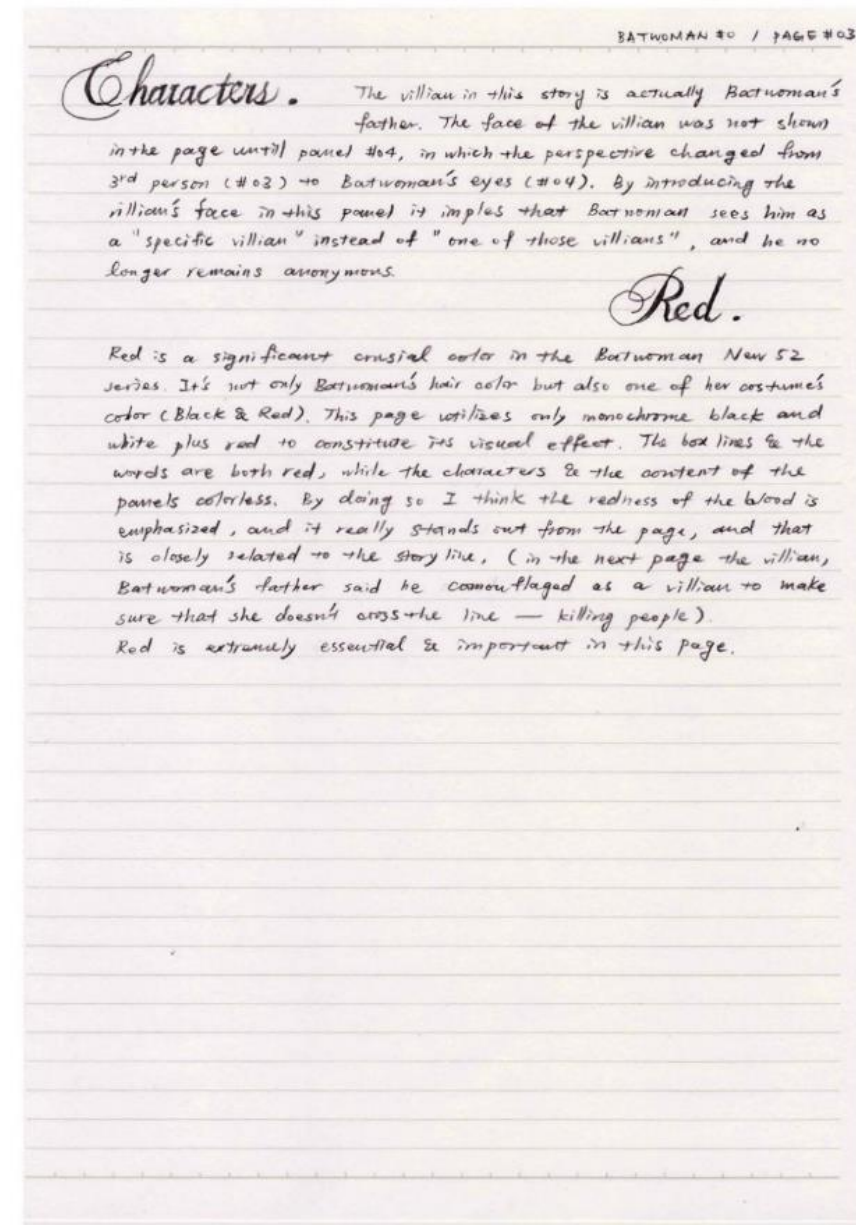 BATWOMAN #0 / PAGE #03
Characters.
The villian in this story is actually Batwoman's
father. The face of the villian was not shown
in the page until panel #04, in which the perspective changed from
3rd person (#03) to Batwoman's eyes (#04). By introducing the
villian's face in this panel it imples that Batwoman sees him as
a "specific villian" instead of "one of those villians", and he no
longer remains anonymous.
Red.
Red is a significant crusial color in the Batwoman New 52
series. It's not only Batwoman's hair color but also one of her costume's
color (Black & Red). This page utilizes only monochrome black and
white plus red to constitute its visual effect. The box lines & the
words are both red, while the characters & the content of the
panels colorless. By doing so I think the redness of the blood is
emphasized, and it really stands out from the page, and that
is closely related to the story line, (in the next page the villian,
Batwoman's father said he comouflaged as a villian to make
sure that she doesn't cross the line — killing people).
Red is extremely essential & important in this page.